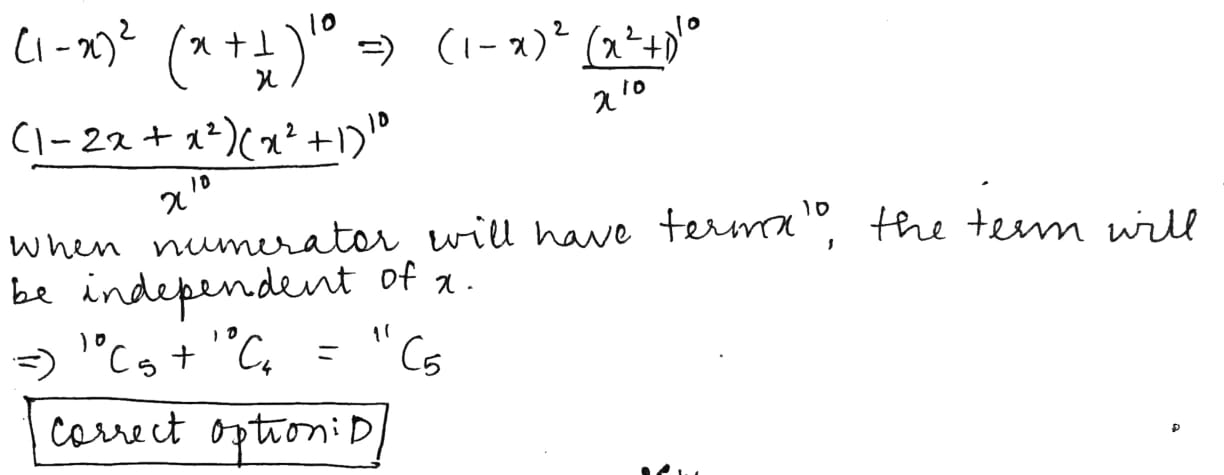 (1-x)² (x + 1/x)¹⁰ ⇒ (1-x)² (x²+1)¹⁰/x¹⁰
(1-2x+x²)(x²+1)¹⁰/x¹⁰
When numerator will have term x¹⁰, the term will
be independent of x.
⇒ ¹⁰C₅ + ¹⁰C₄ = ¹¹C₅
correct option: D